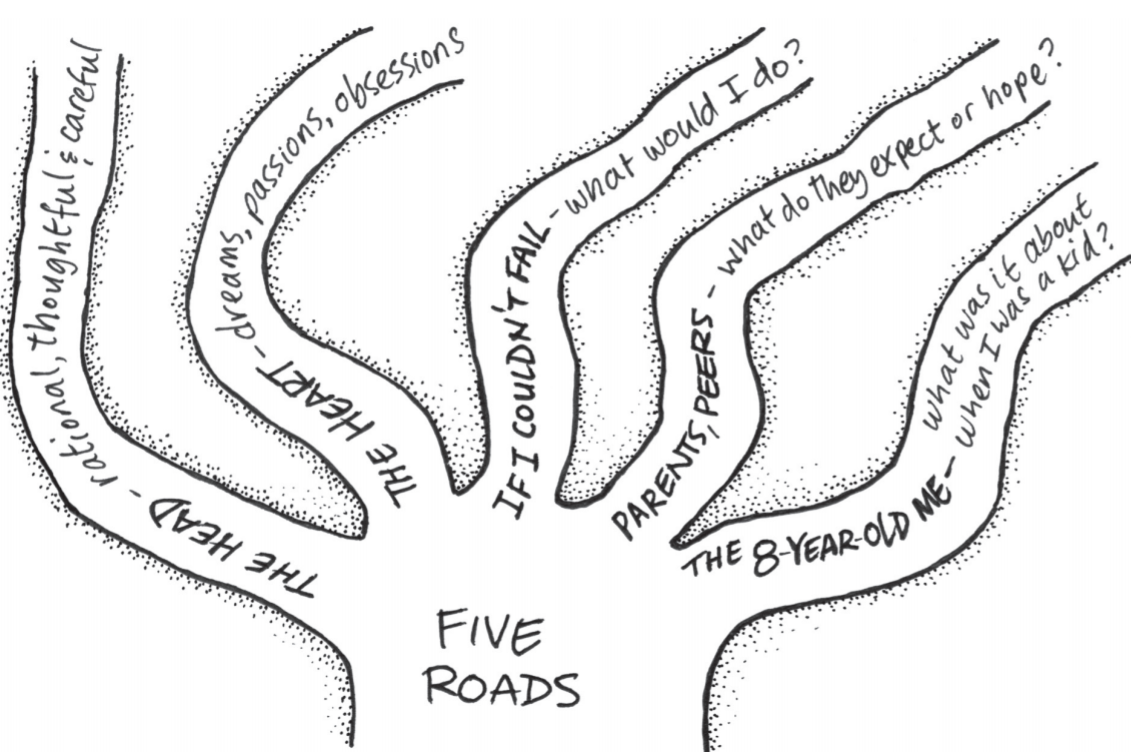 THE HEAD - rational, thoughtful & careful
THE HEART - dreams, passions, obsessions
IF I COULDN'T FAIL - what would I do?
PARENTS, PEERS - what do they expect or hope?
THE 8-YEAR-OLD ME - what was it about
when I was a kid?
FIVE
ROADS